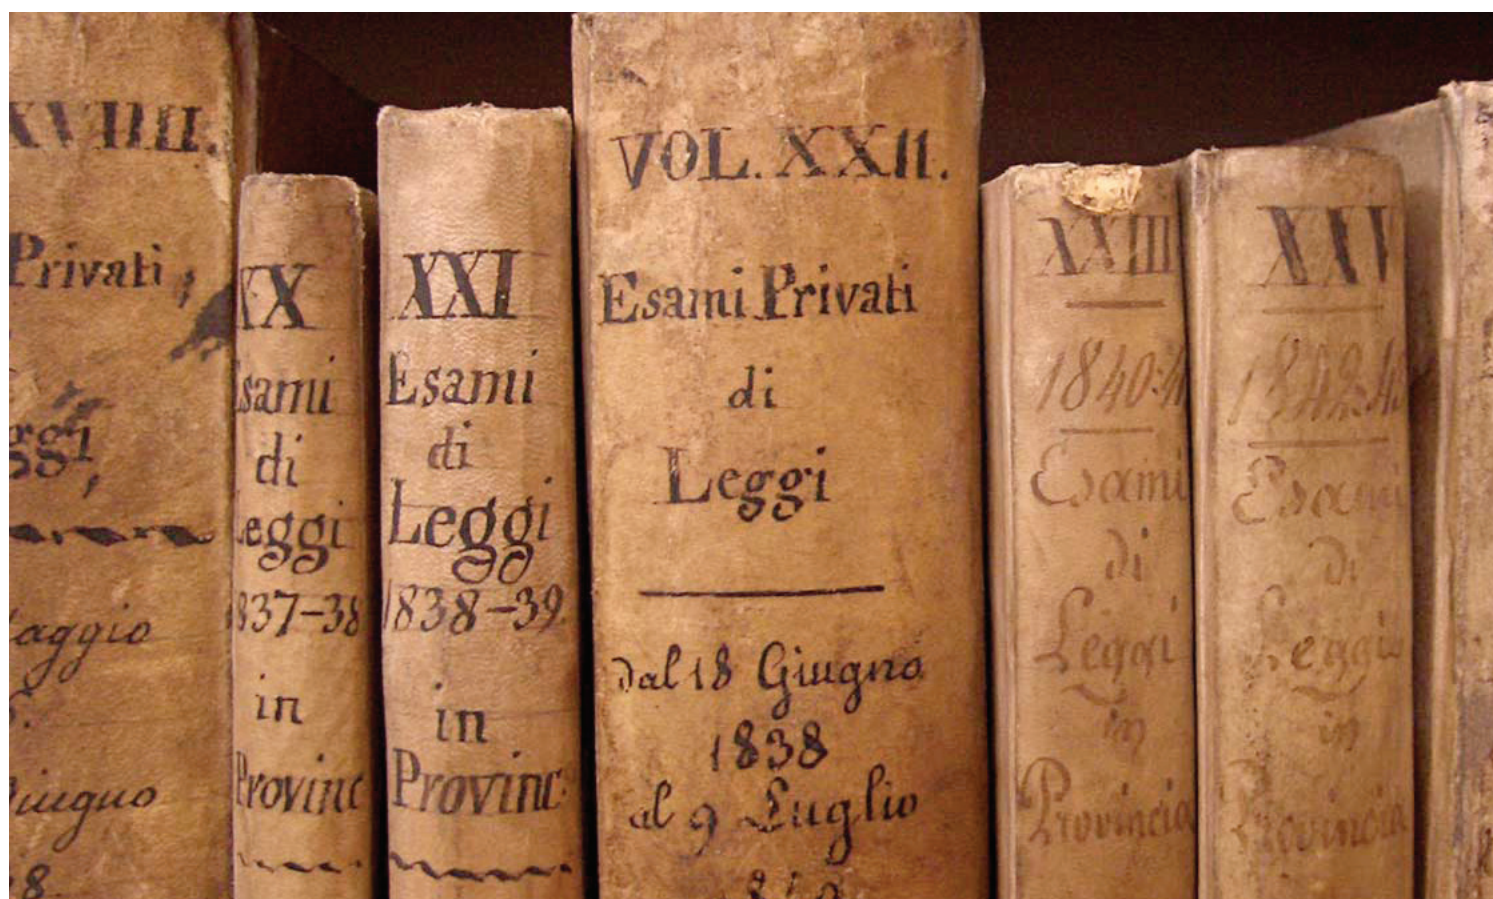 XVIIII.
Privati,
ggi,
aggio
iugno
8
XX
Esami
di
Leggi
1837-38
in
Provinc
XXI
Esami
di
Leggi
1838-39.
in
Provinc.
VOL. XXII.
Esami Privati
di
Leggi
dal 18 Giugno
1838
al 9 Luglio
XXIIII
1840:4
Esami
di
Leggi
in
Provincia
XXV
1842:43
Esami
di
Leggi
in
Provincia